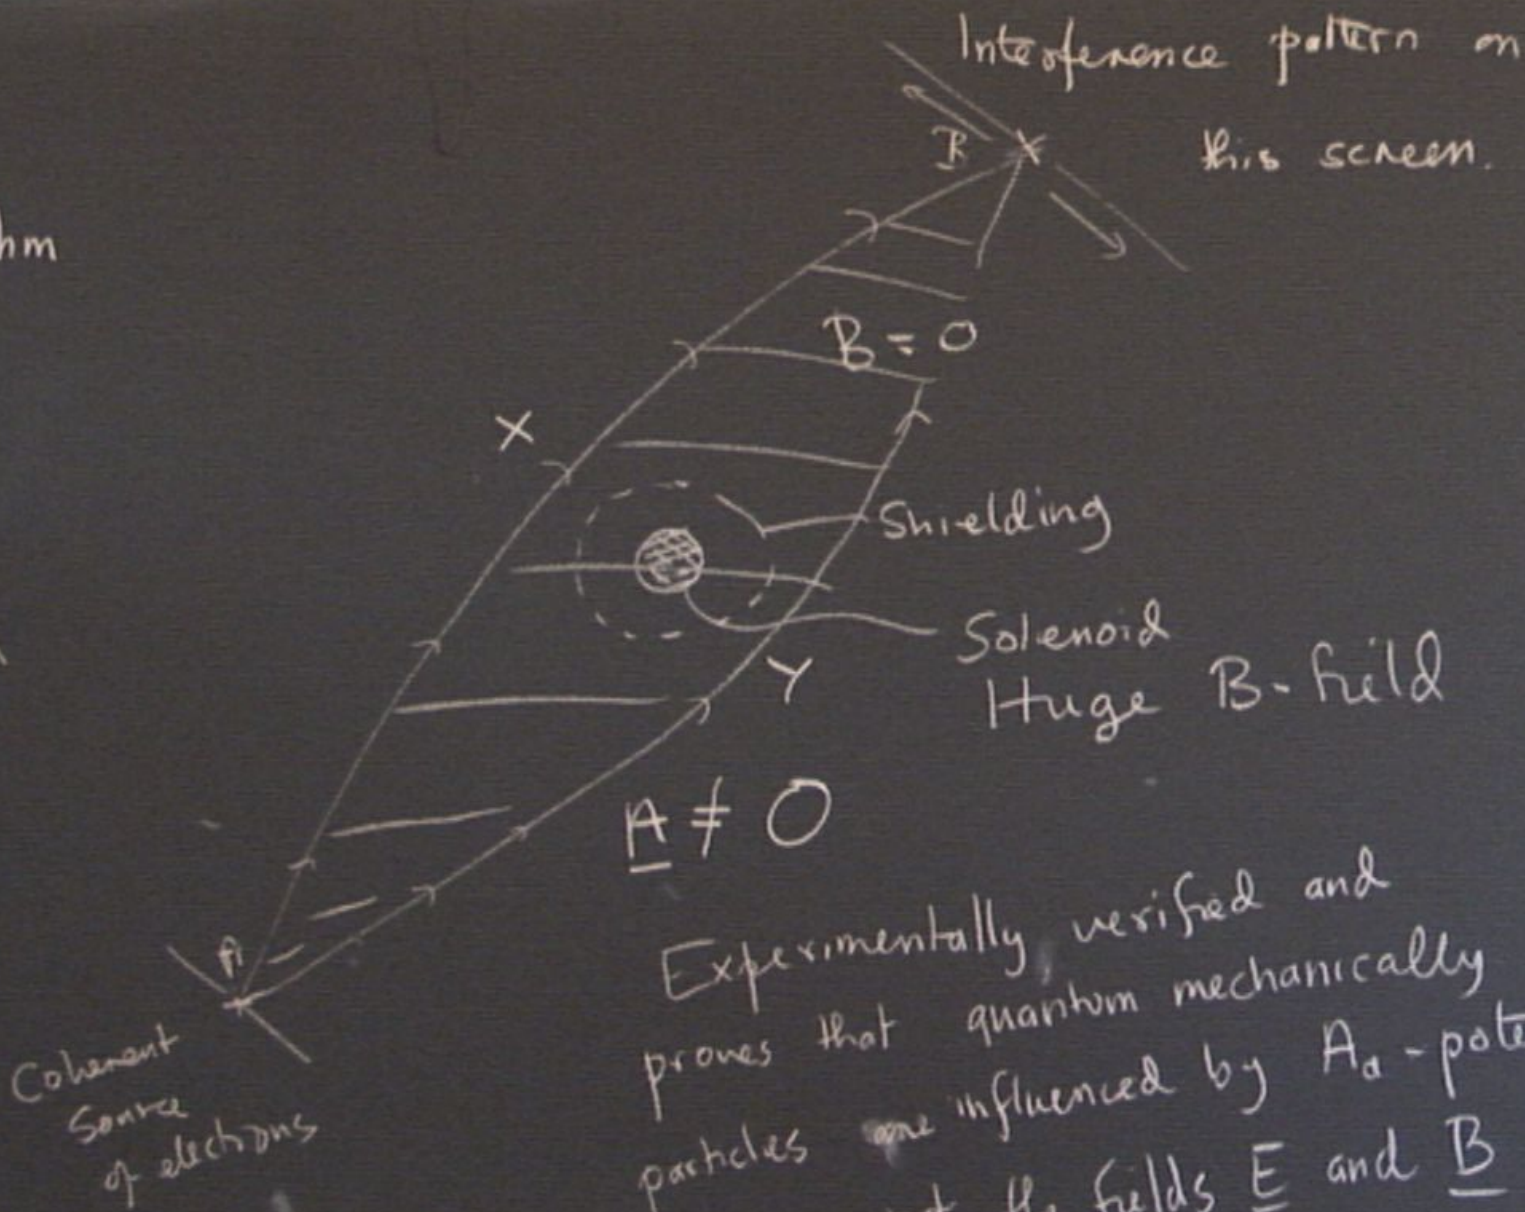 Interference pattern on
this screen.
hm
R
B = 0
X
Shielding
Solenoid
Huge B-field
Y
A ≠ 0
A
Coherent
Source
of electrons
Experimentally verified and
proves that quantum mechanically
particles are influenced by Aα - pote
fields E and B